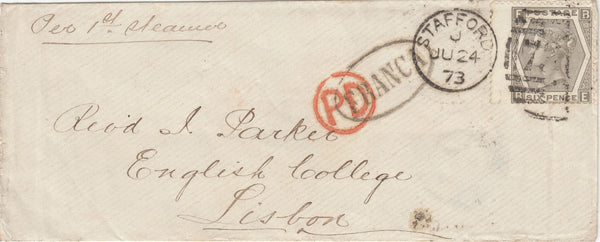 Per 1st Steamer
STAFFORD
J
JU 24
73
FRANCA
PD
E POSTAGE R
R SIX PENCE E
Revd I. Parker
English College
Lisbon